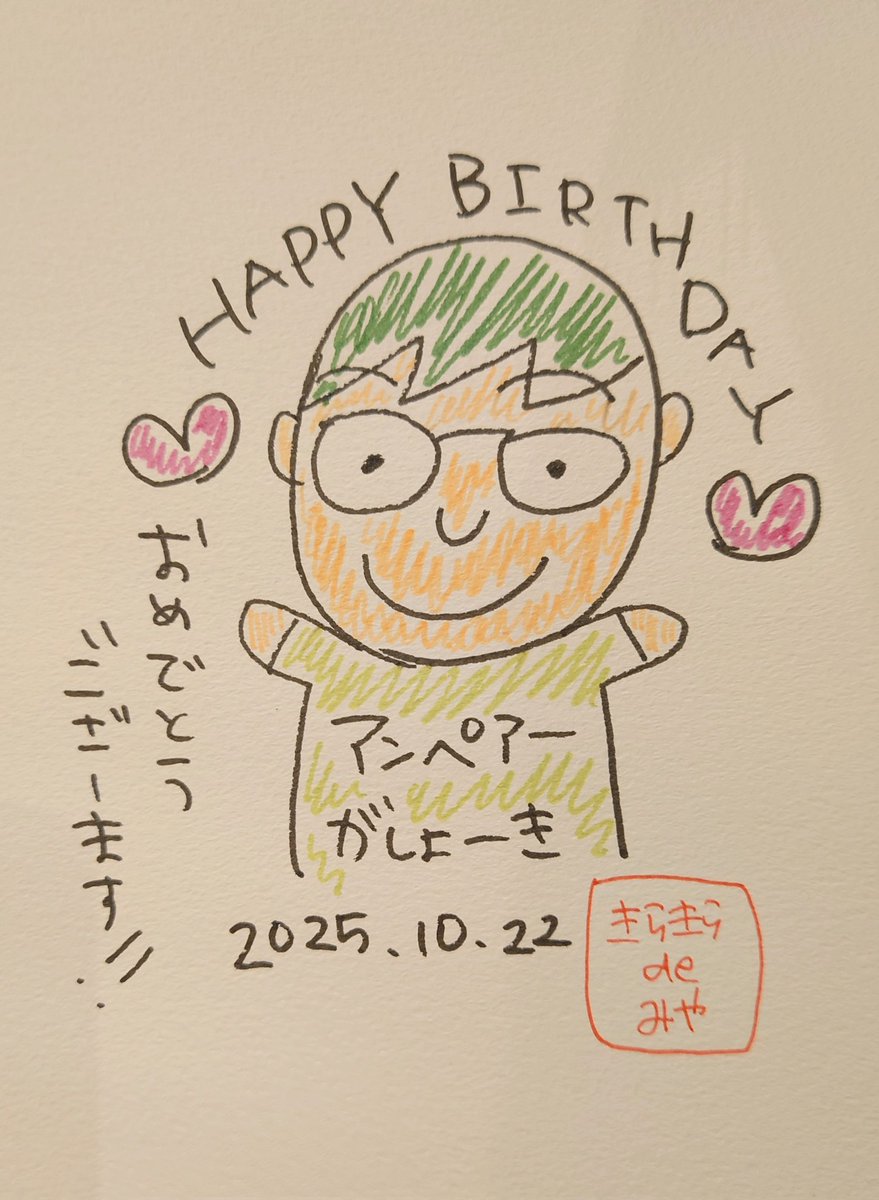 HAPPY BIRTHDAY
おめでとう
ござーます!!
アンペアー
がしょーき
2025.10.22
きらきら
de
みや